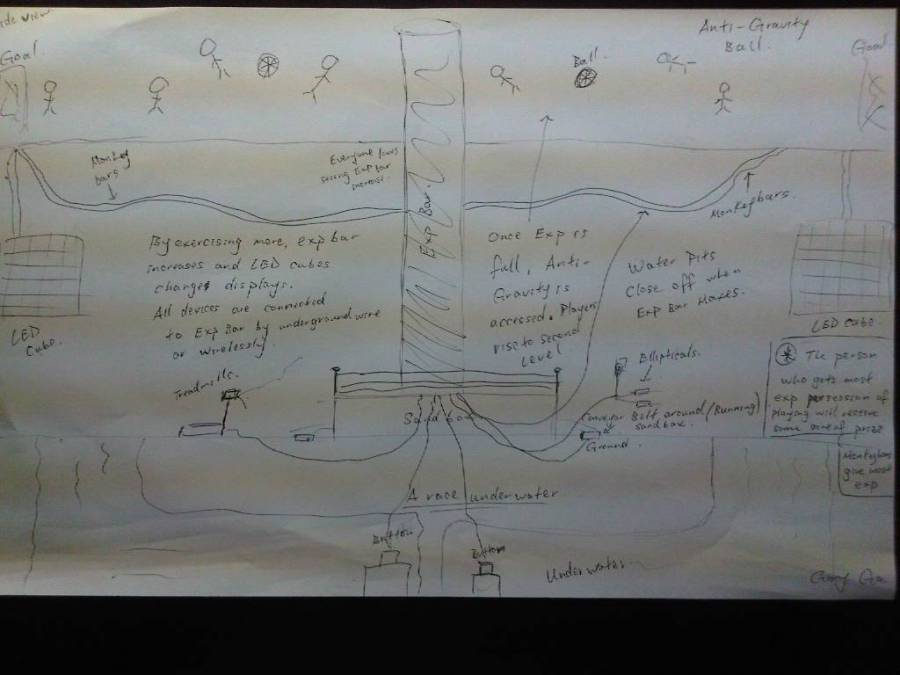 side view
Goal
Ball.
Anti-Gravity
Ball.
Goal
Monkey
bars
Everyone
Exp bar
increase.
Exp Bar.
Monkeybars.
By exercising more, exp bar
increases and LED cubes
changes displays.
All devices are connected
to Exp Bar by underground wire
or wirelessly.
Once Exp is
full, Anti-
Gravity is
accessed. Players
rise to second
level
Water Pits
Close off when
Exp Bar Maxes.
LED
Cube.
LED Cube.
Treadmills.
Ellipticals.
Sandbox
Conveyor Belt around/(Running)
sandbox.
Ground
The person
who gets most
exp
playing will receive
some sort of prize
Monkeybars
give most
exp
A race underwater
Button
Button
Underwater